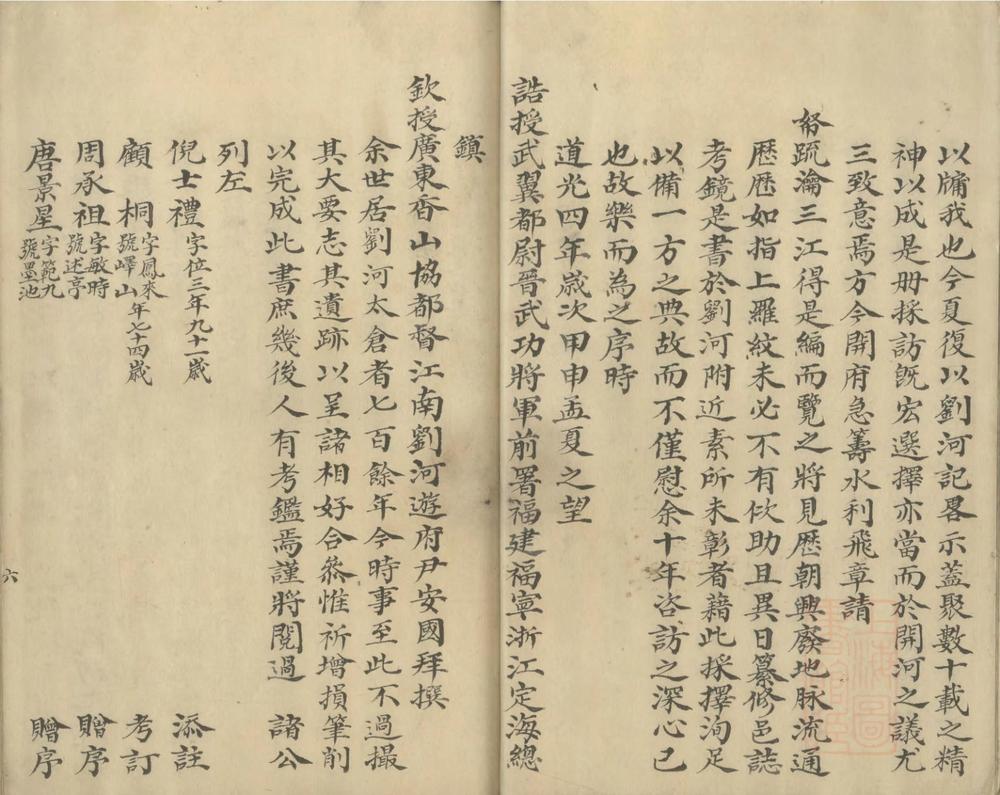 以牗我也今夏復以劉河記畧示蓋聚數十載之精
神以成是册採訪旣宏選擇亦當而於開河之議尤
三致意焉方今開府急籌水利飛章請
帑䟽瀹三江得是編而覽之將見歷朝興廢地脉流通
歷歷如指上羅紋未必不有佽助且異日纂修邑誌
考鏡是書於劉河附近素所未彰者藉此採擇洵足
以備一方之典故而不僅慰余十年咨訪之深心已
也故樂而為之序時
道光四年歲次甲申孟夏之望
誥授武翼都尉晉武功將軍前署福建福寧浙江定海總
鎮
欽授廣東香山協都督江南劉河遊府尹安國拜撰
余世居劉河太倉者七百餘年今時事至此不過撮
其大要志其遺跡以呈諸相好合叅惟祈增損筆削
以完成此書庶幾後人有考鑑焉謹將閱過 諸公
列左
倪士禮 字位三年九十一歲 添註
顧 桐 字鳳來 號嶧山 年七十四歲 考訂
周承祖 字敏時 號述亭 贈序
唐景星 字範九 號墨池 贈序
六